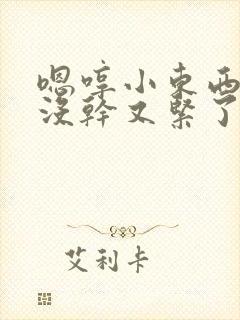 嗯哼小东西
没幹又緊了
艾利卡